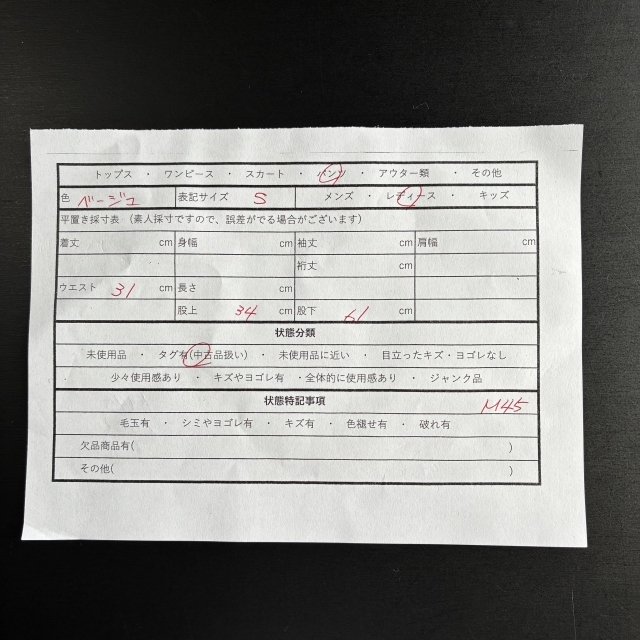 トップス ・ ワンピース ・ スカート ・ パンツ ・ アウター類 ・ その他
色 ベージュ 表記サイズ S メンズ ・ レディース ・ キッズ
平置き採寸表 （素人採寸ですので、誤差がでる場合がございます）
着丈 cm 身幅 cm 袖丈 cm 肩幅 cm
裄丈 cm
ウエスト 31 cm 長さ cm
股上 34 cm 股下 61 cm
状態分類
未使用品 ・ タグ有(中古品扱い) ・ 未使用品に近い ・ 目立ったキズ・ヨゴレなし
少々使用感あり ・ キズやヨゴレ有 ・全体的に使用感あり ・ ジャンク品
状態特記事項
M45
毛玉有 ・ シミやヨゴレ有 ・ キズ有 ・ 色褪せ有 ・ 破れ有
欠品商品有( )
その他( )